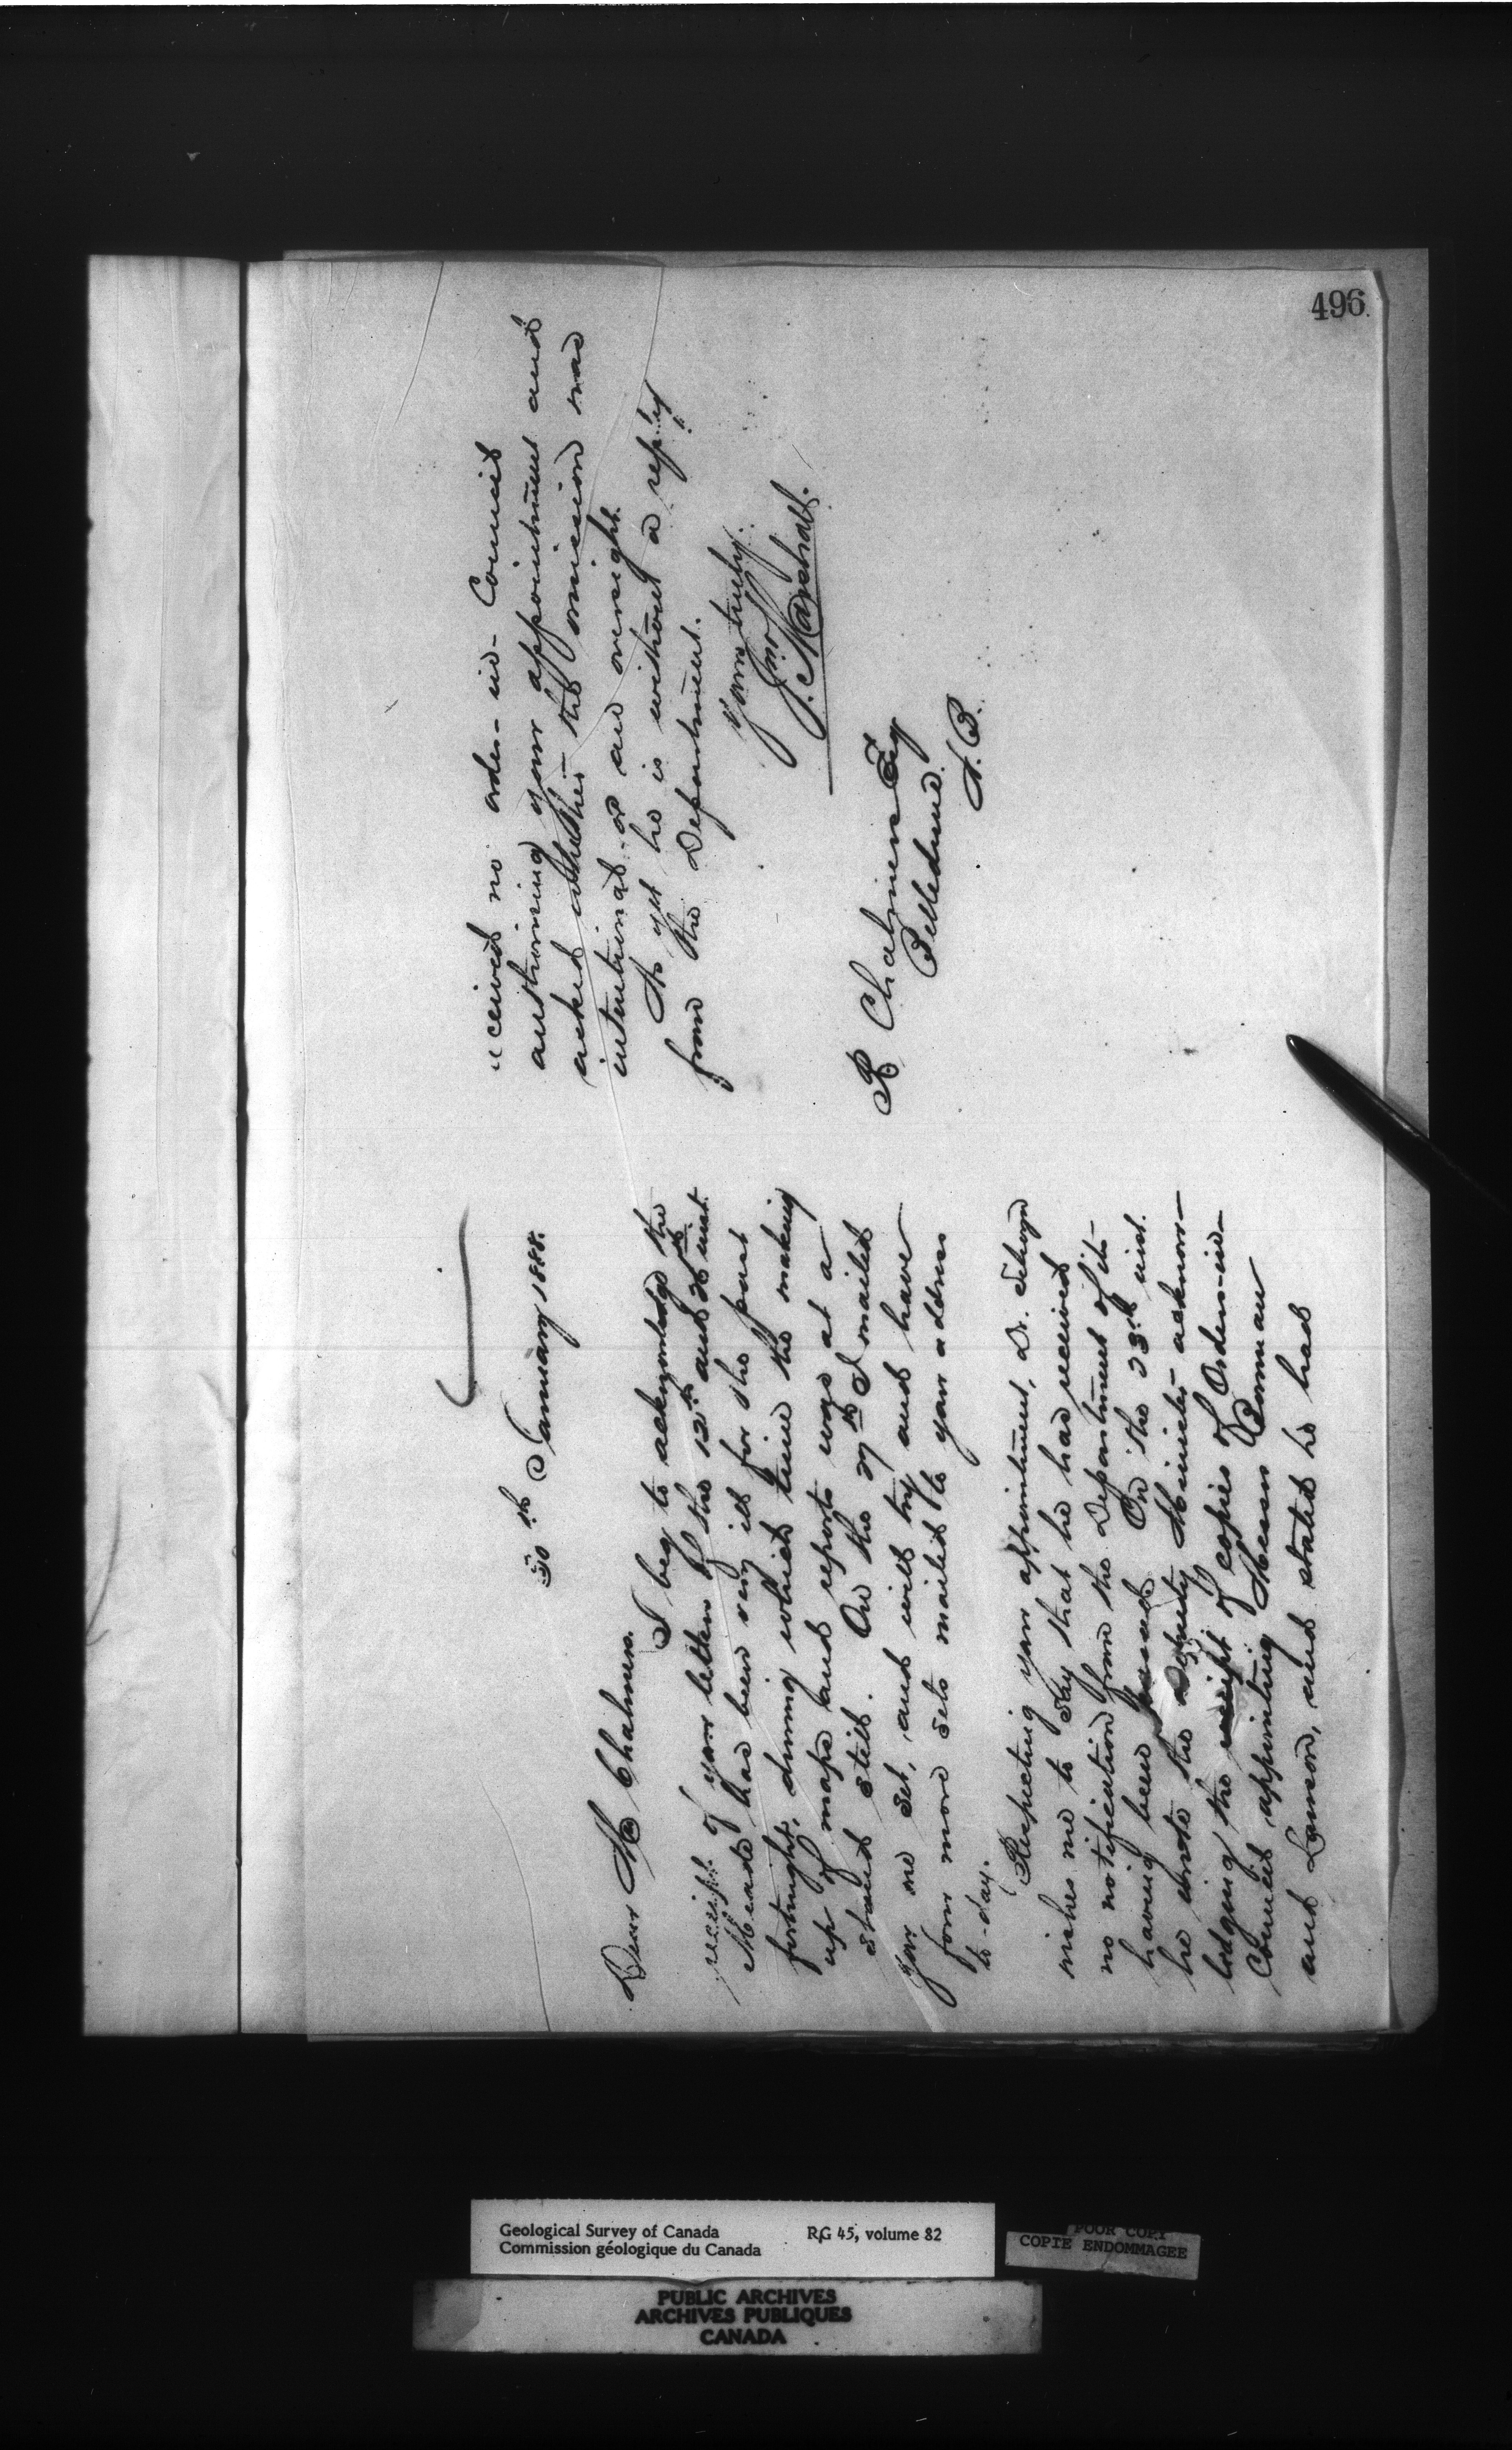 496
30th January 1888.
Dear Mr Chalmers.
I beg to acknowledge the
receipt of your letters of the 12th and 26th inst.
Meade has been very ill for the past
fortnight, during which time the making
up of maps and reports was at a
stand still. On the 27th I mailed
you one set, and will try and have
four more sets mailed to your address
to-day.
Respecting your appointment, Dr. Selwyn
wishes me to say that he has received
no notification from the Department of it
having been passed. On the 23rd inst.
he wrote the Deputy Minister acknow-
ledging the receipt of copies of Orders-in-
Council appointing Messrs Bowman
and Lawson, and stated he had
received no order-in-Council
authorizing your appointment and
asked whether the omission was
intentional or an oversight.
As yet he is without a reply
from the Department.
Yours truly.
Jno. Marshall.
R Chalmers Esq
Belledune.
N.B.
Geological Survey of Canada RG 45, volume 82
Commission géologique du Canada
POOR COPY
COPIE ENDOMMAGEE
PUBLIC ARCHIVES
ARCHIVES PUBLIQUES
CANADA